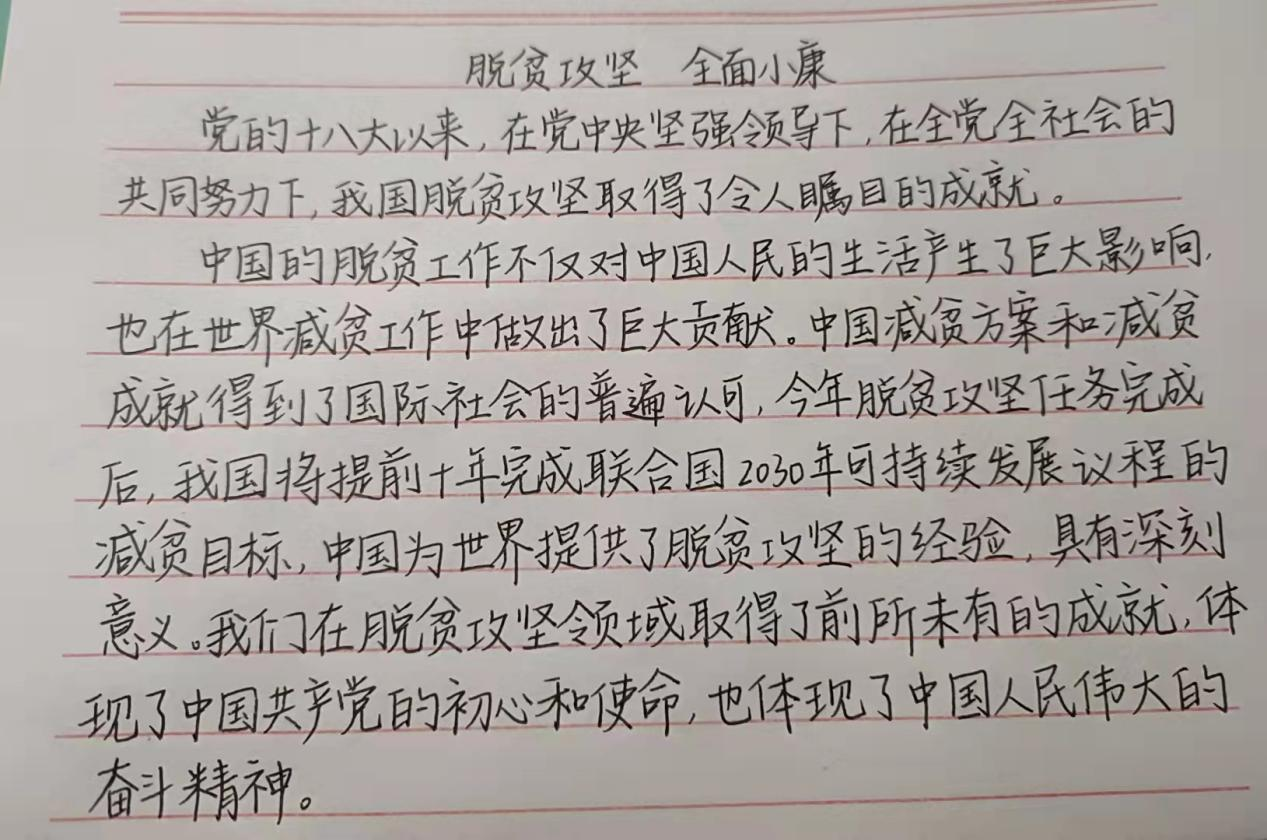 脱贫攻坚 全面小康
党的十八大以来,在党中央坚强领导下,在全党全社会的
共同努力下,我国脱贫攻坚取得了令人瞩目的成就。
中国的脱贫工作不仅对中国人民的生活产生了巨大影响,
也在世界减贫工作中做出了巨大贡献。中国减贫方案和减贫
成就得到了国际社会的普遍认可,今年脱贫攻坚任务完成
后,我国将提前十年完成联合国2030年可持续发展议程的
减贫目标,中国为世界提供了脱贫攻坚的经验,具有深刻
意义。我们在脱贫攻坚领域取得了前所未有的成就,体
现了中国共产党的初心和使命,也体现了中国人民伟大的
奋斗精神。